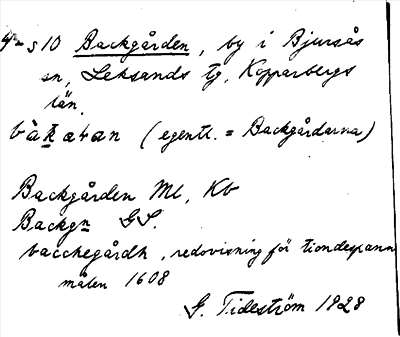 4-510 Backgården, by i Bjursås
sn, Leksands tg, Kopparbergs
län.
(egentl. = Backgårdarna)
Backgården Ml, Kb
Backgn GS.
bacchegårdh, redovisning för tiondespann
målen 1608
G. Tideström 1928